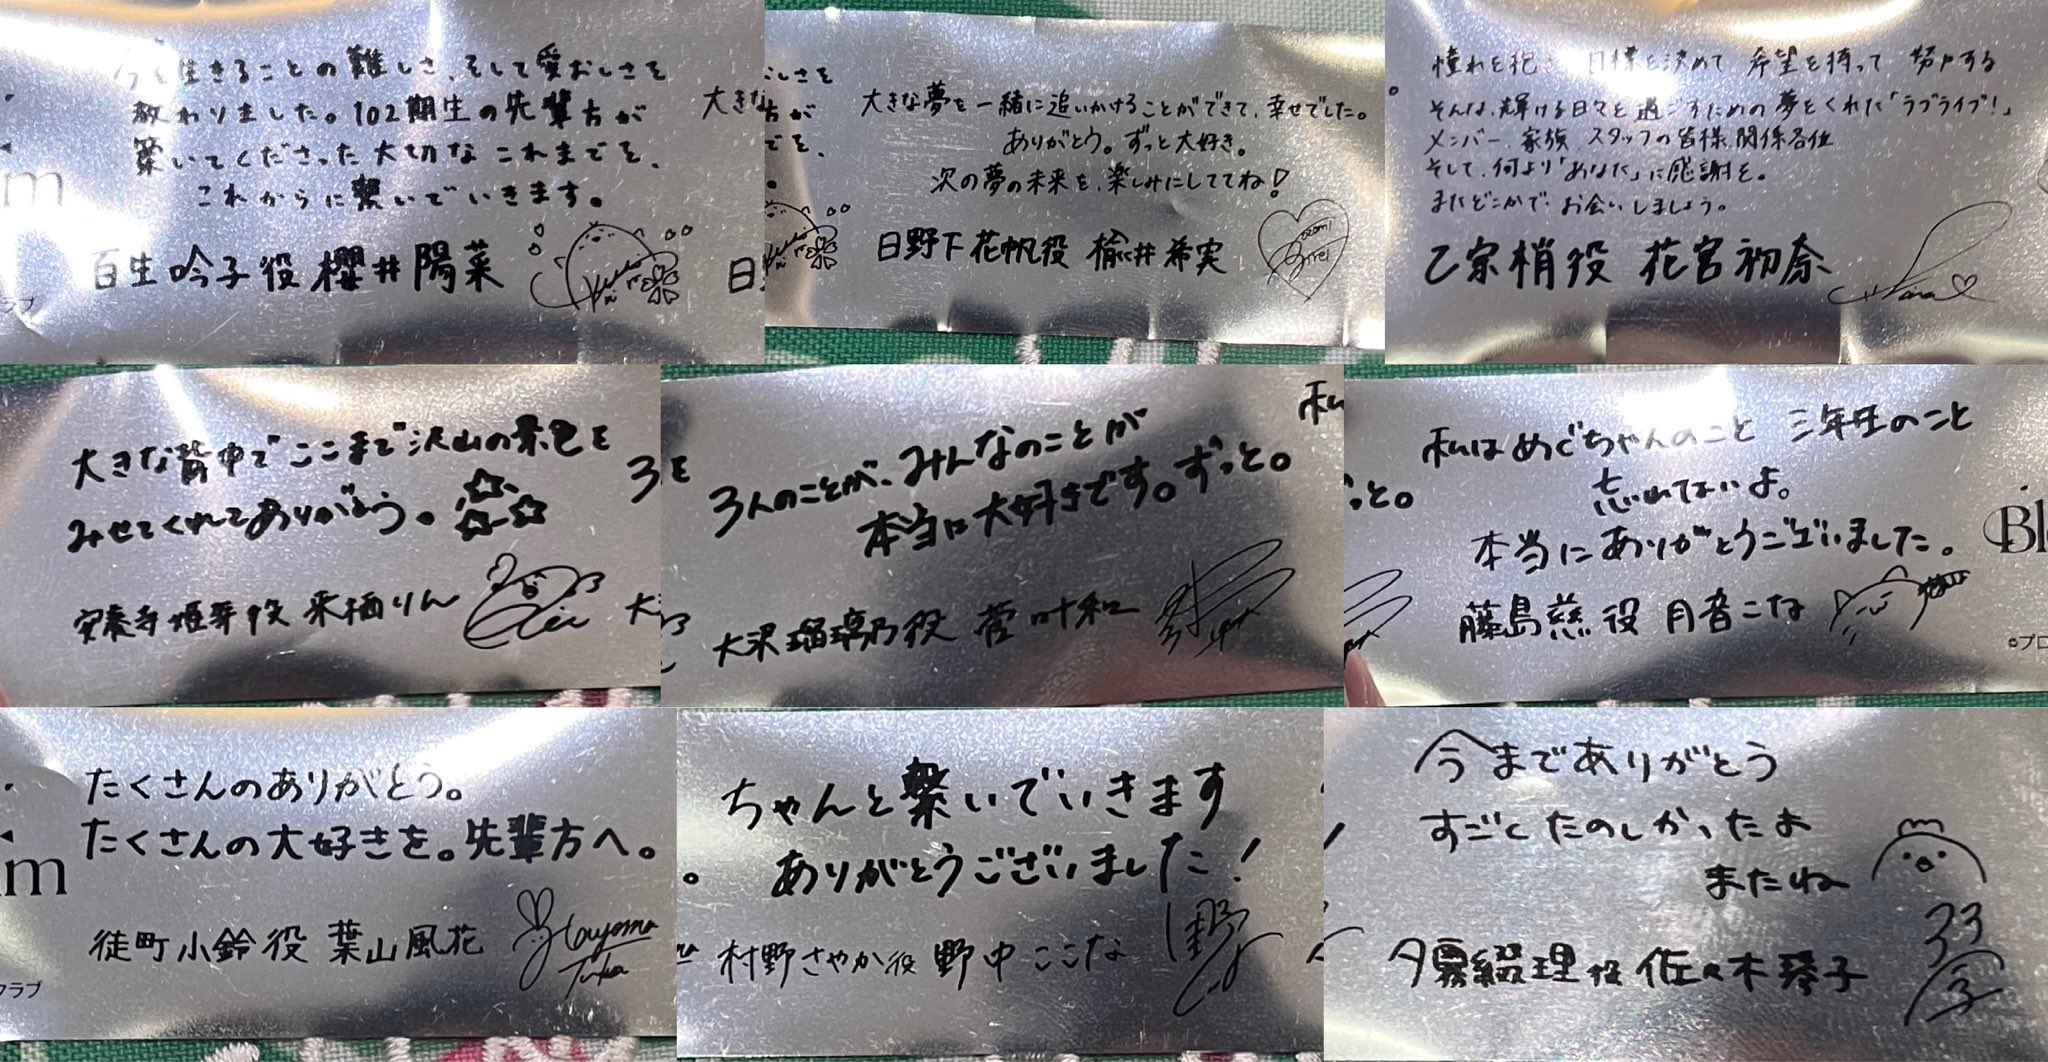 今を生きることの難しさ、そして愛おしさを
教わりました。102期生の先輩方が
築いてくださった大切なこれまでを、
これからに繋いでいきます。
百生吟子役 櫻井陽菜
大きな夢を一緒に追いかけることができて、幸せでした。
ありがとう。ずっと大好き。
次の夢の未来を、楽しみにしててね!
日野下花帆役 楡井希実
Nozomi
Nirei
憧れを抱き 目標を決めて 希望を持って 努力する
そんな、輝ける日々を過ごすための夢をくれた「ラブライブ!」
メンバー、家族、スタッフの皆様、関係各位
そして、何より「あなた」に感謝を。
またどこかで お会いしましょう。
乙宗梢役 花宮初奈
大きな背中で"ここまで"沢山の景色を
みせてくれてありがとう。
安養寺姫芽役 来栖りん
3人のことが、みんなのことが
本当に大好きです。ずっと。
大沢瑠璃乃役 菅叶和
私はめぐちゃんのこと 三年生のこと
忘れてないよ。
本当にありがとうございました。
藤島慈役 月音こな
Bl
©プロ
m
ラブ
たくさんのありがとう。
たくさんの大好きを。先輩方へ。
徒町小鈴役 葉山風花
Hayama
Fuka
m
クラブ
ちゃんと繋いでいきます
ありがとうございました!
村野さやか役 野中ここな
今までありがとう
すごくたのしかったよ
またね
夕霧綴理役 佐々木琴子